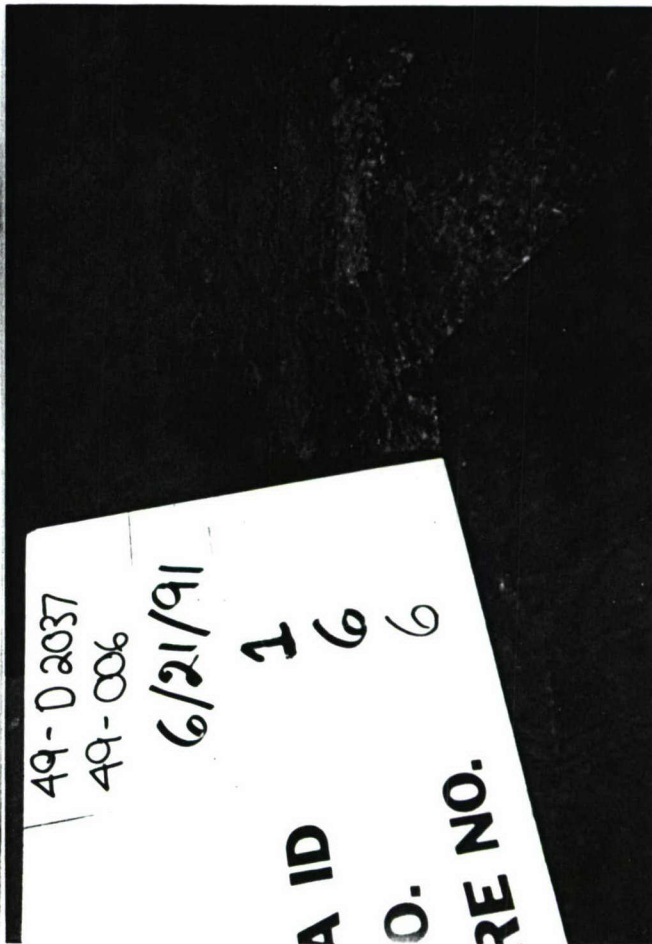 49-D2037
49-006
6/21/91
A ID 1
O. 6
RE NO. 6